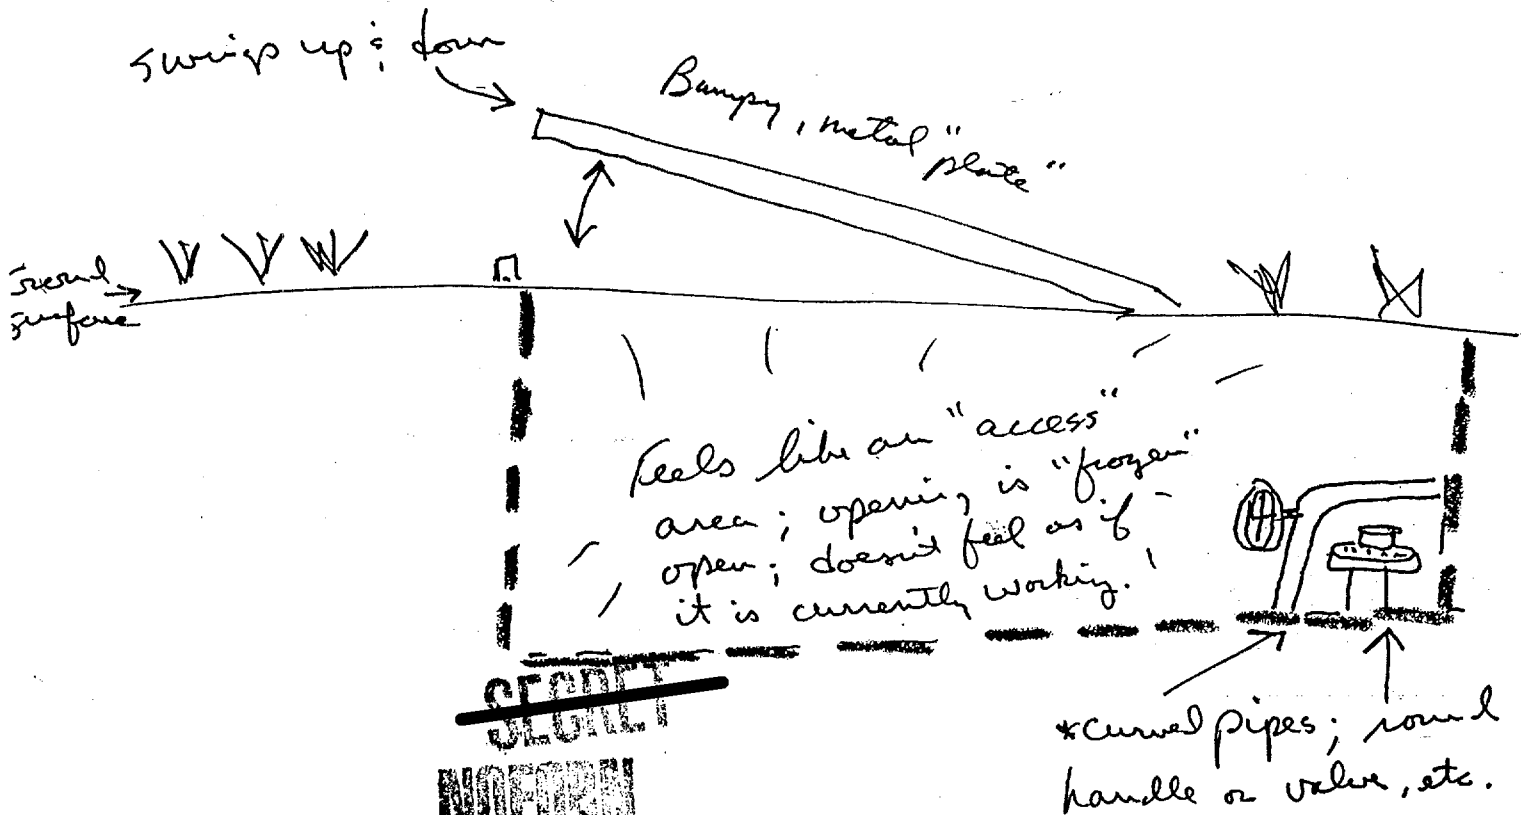 Swings up & down
Bumpy, metal "plate"
Ground
surface
Feels like an "access"
area; opening is "frozen"
open; doesn't feel as if
it is currently working.
SECRET
NOFORN
*curved pipes; round
handle or valve, etc.